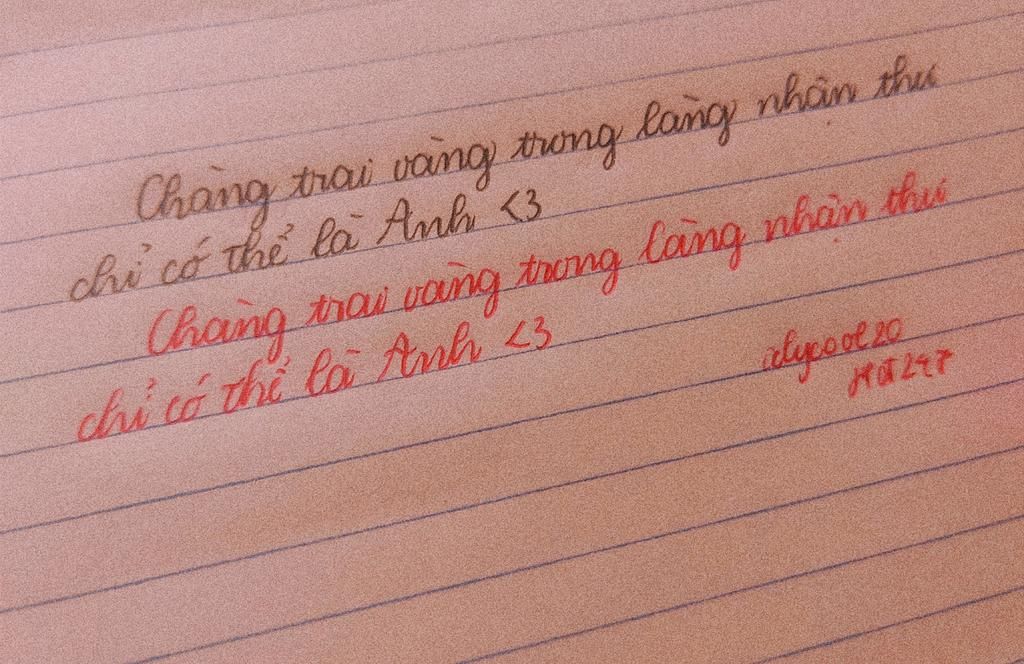 Chàng trai vàng trong làng nhân thư
chỉ có thể là Anh <3
Chàng trai vàng trong làng nhân thú
chỉ có thể là Anh <3
alycool20
Hđ247